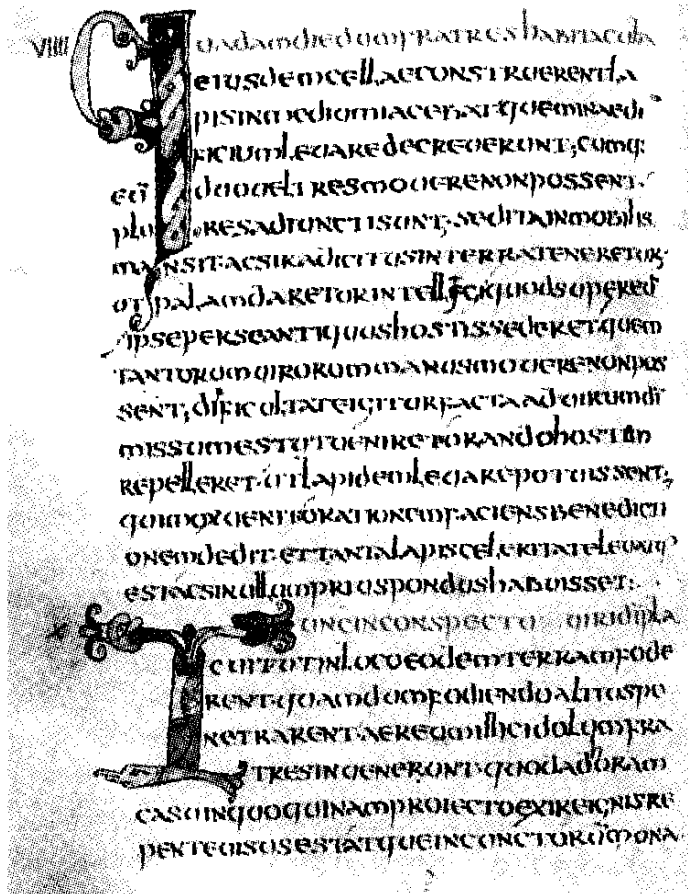 VIIII Quadam die dum fratres habitacula
eiusdem cellae construerent la
pis in medio iacebat quem in aedi
ficium leuare decreuerunt; cumq:
eū duo uel tres mouere non possent.
plures adiuncti sunt. sed ita inmobilis
mansit ac si radicitus in terra teneretur.
ut palam daretur intellegi quod super eū
ipse per se antiquus hostis sederet. quem
tantorum uirorum manus mouere non pos
sent; dificultate igitur facta ad uirum dī
missum est ut ueniret orando hostem
repelleret. ut lapidem leuare potuissent;
qui mox uenit orationem faciens benedicti
onem dedit. et tanta lapis celeritate leuat
est ac si nullum prius pondus habuisset;
X Tunc in conspectu uiri dī pla
cuit ut in loco eodem terram fode
rent. quam dum fodiendo altius pe
netrarent. aereum illic idolum fra
tres inuenerunt. quo ad horam
casu in quoquinam proiecto exire ignis re
pente uisus est atque in cunctorū mona